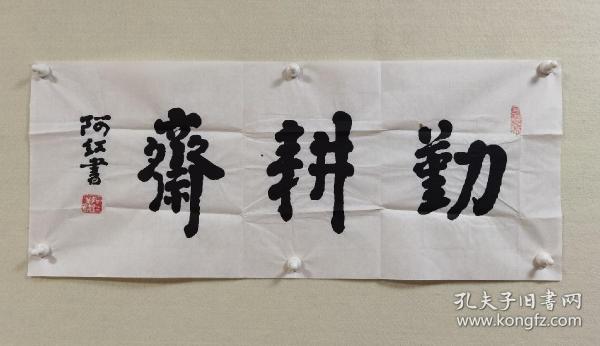 勤耕齋
阿红書
孔夫子旧書网
www.kongfz.com